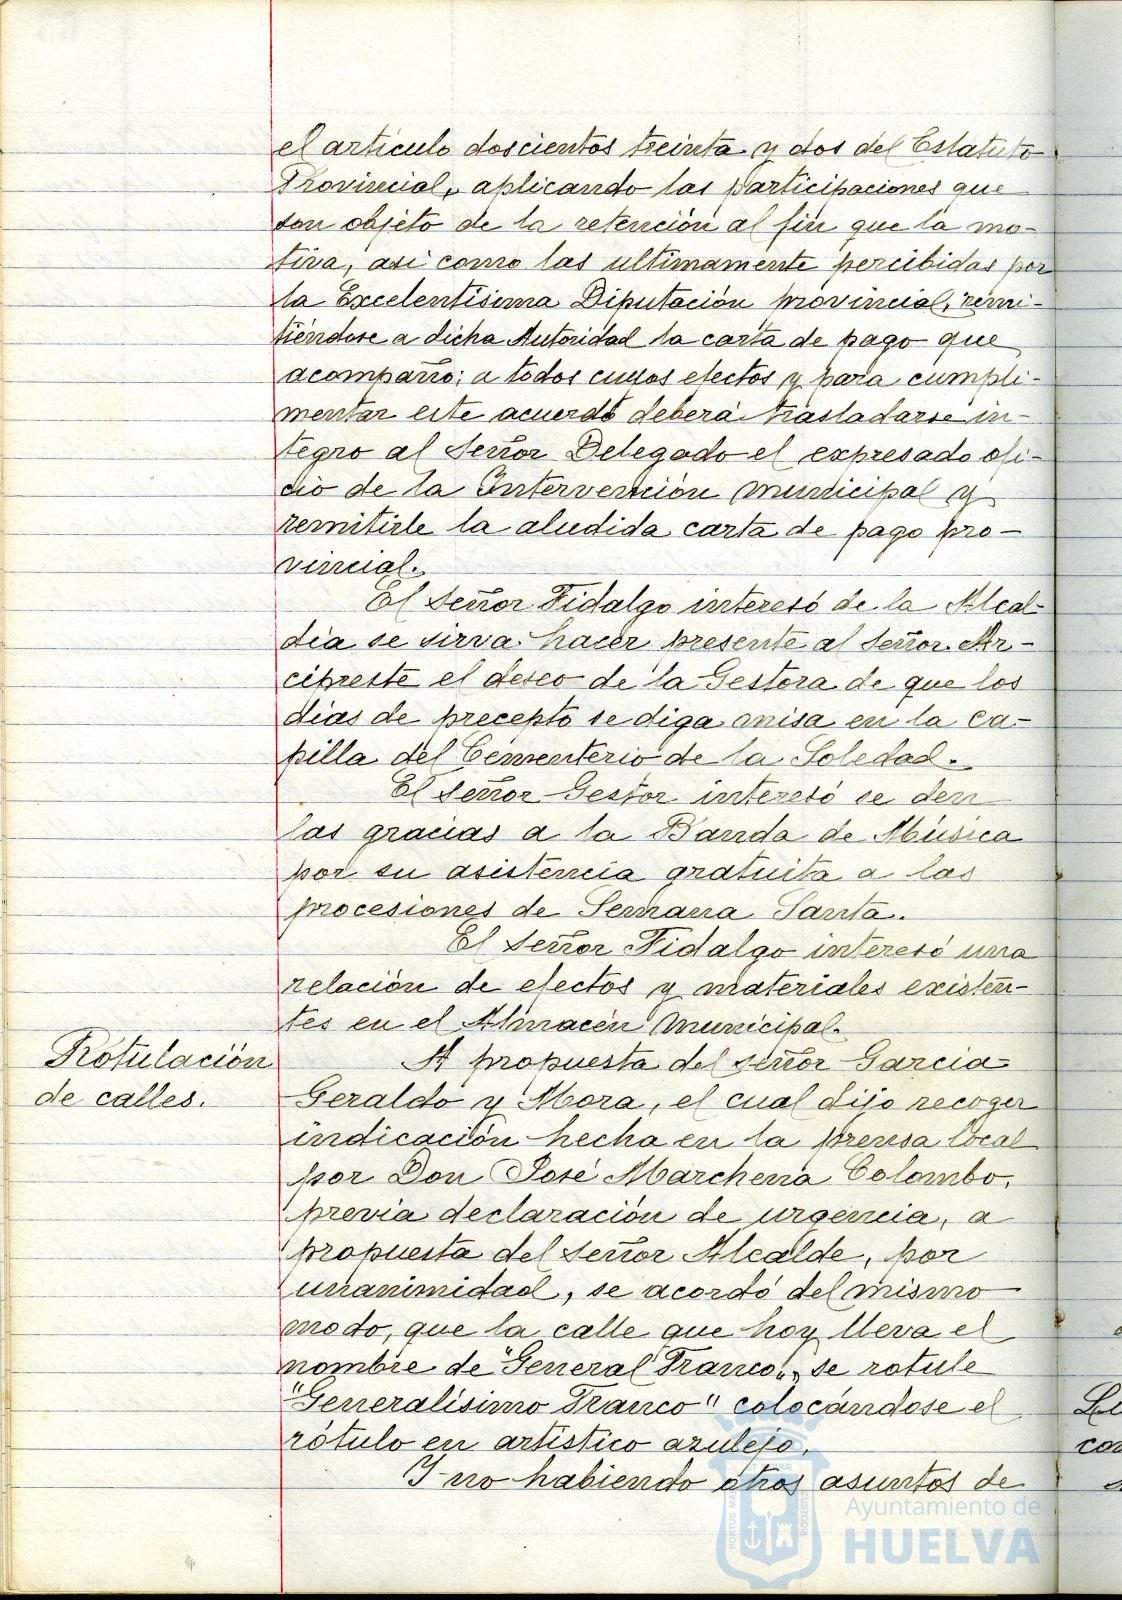 el artículo doscientos treinta y dos del Estatuto
Provincial, aplicando las participaciones que
son objeto de la retención al fin que la mo-
tiva, asi como las ultimamente percibidas por
la Excelentísima Diputación provincial, remi-
tiéndose a dicha Autoridad la carta de pago que
acompaño; a todos cuyos efectos y para cumpli-
mentar este acuerdo deberá trasladarse in-
tegro al Señor Delegado el expresado ofi-
cio de la Intervención municipal y
remitirle la aludida carta de pago pro-
vincial.
El Señor Fidalgo interesó de la Alcal-
día se sirva hacer presente al Señor Ar-
cipreste el deseo de la Gestora de que los
días de precepto se diga misa en la ca-
pilla del Cementerio de la Soledad.
El Señor Gestor interesó se den
las gracias a la Banda de Música
por su asistencia gratuita a las
procesiones de Semana Santa.
El Señor Fidalgo interesó una
relación de efectos y materiales existen-
tes en el Almacén Municipal.
Rotulación
de calles.
A propuesta del señor García
Geraldo y Mora, el cual dijo recoger
indicación hecha en la prensa local
por Don José Marchena Colombo,
previa declaración de urgencia, a
propuesta del señor Alcalde, por
unanimidad, se acordó del mismo
modo, que la calle que hoy lleva el
nombre de "General Franco", se rotule
"Generalísimo Franco" colocándose el
rótulo en artístico azulejo.
Y no habiendo otros asuntos de
Ayuntamiento de
HUELVA